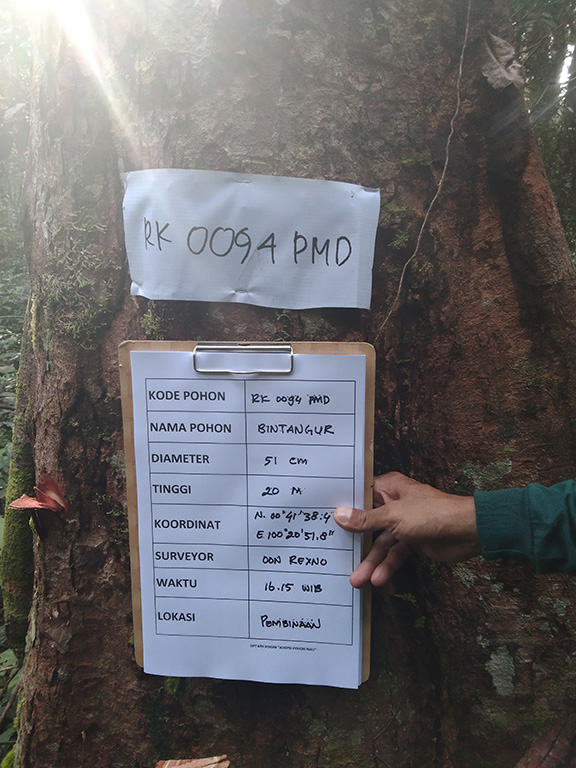 RK 0094 PMD
KODE POHON RK 0094 PMD
NAMA POHON BINTANGUR
DIAMETER 51 cm
TINGGI 20 M
KOORDINAT N. 00°41'38.4
E 100°20'51.8"
SURVEYOR DON REXNO
WAKTU 16.15 WIB
LOKASI PEMBINAAN